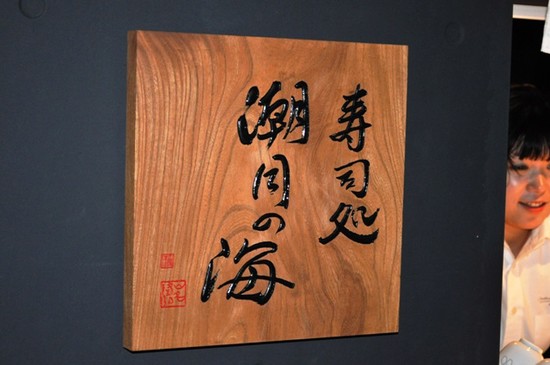 寿司処
潮月の海